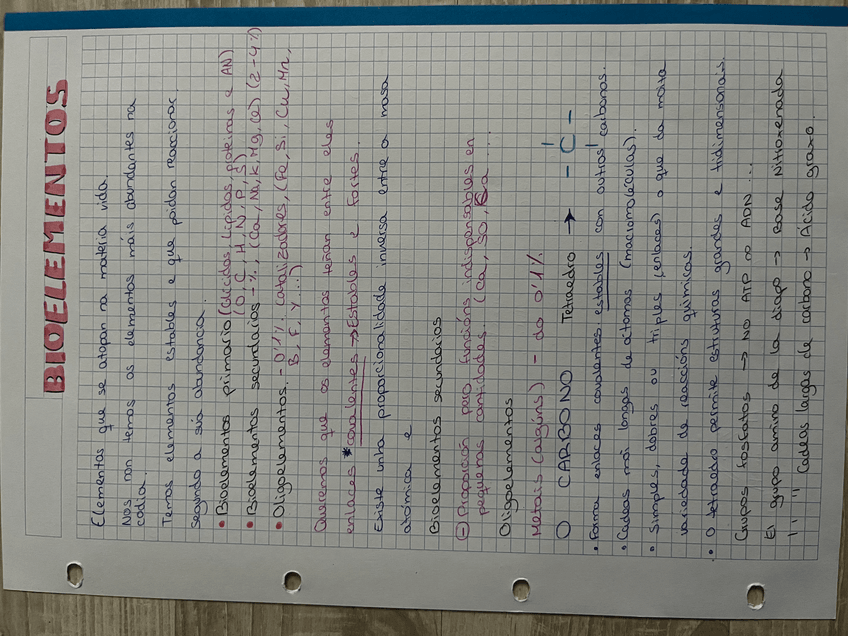 BIOELEMENTOS
Elementos que se atopan na materia vida.
Nos non temos os elementos máis abundantes na
codia.
Temos elementos estables e que poidan reaccionar
segundo a súa abundancia.
• Bioelementos primario (Glícidos, lípidos, proteínas e AN)
(O, C, H, N, P, S)
• Bioelementos secundarios -%. (Ca, Na, K, Mg, Cl) (2-4%)
• Oligoelementos. -0'1%. Catalizadores, (Fe, Si, Cu, Mn,
B, F, Y...)
Queremos que os elementos teñan entre eles
enlaces *covalentes → Estables e Fortes.
Existe unha proporcionalidade inversa entre a masa
atómica e
Bioelementos secundarios
⊖ Proporción para funcións indispensables en
pequenas cantidades. (Ca, SO, ...
Oligoelementos
Metais (algúns) - do 0'1%
O CARBONO Tetraedro → - C -
• Forma enlaces covalentes estables con outros carbonos.
• Cadeas moi longas de átomos (macromoléculas).
• Simples, dobres ou triples (enlaces) o que da moita
variedade de reaccións químicas.
• O tetraedro permite estruturas grandes e tridimensionais.
Grupos fosfatos → NO ATP oo ADN...
El grupo amino de la diapo → Base Nitroxenada
" " Cadeas largas de carbono → Ácido graxo.